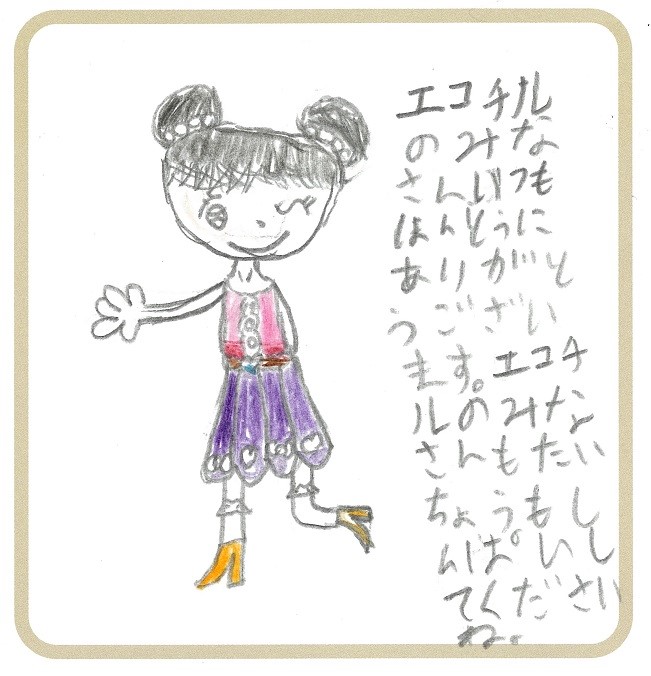 エコチル
のみな
さんいつも
ほんとうに
ありがと
うござい
ます。エコチ
ルのみな
さんもたい
ちょうもし
んぱいし
てください
ね。